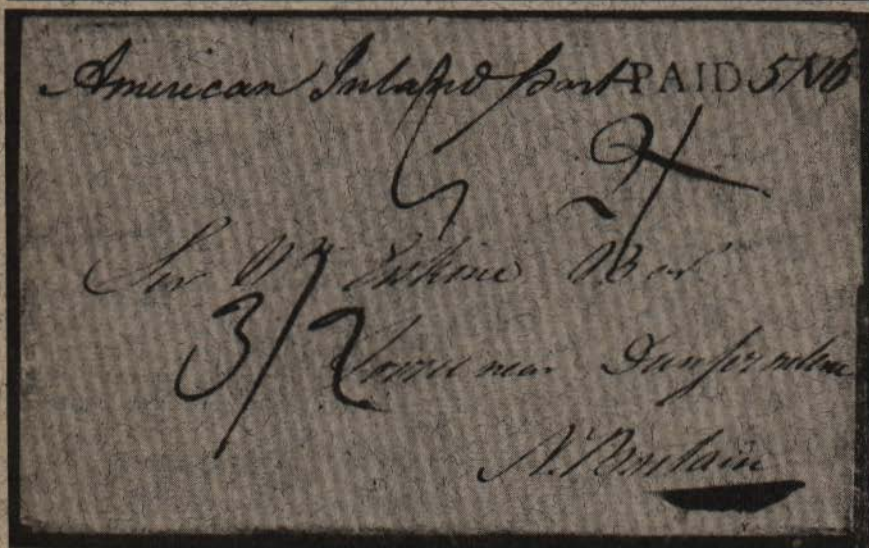 American Inland post PAID 5N6
2/
Sir Wm Erskine Bart
3/2
Torrie near Dunfermline
N. Britain